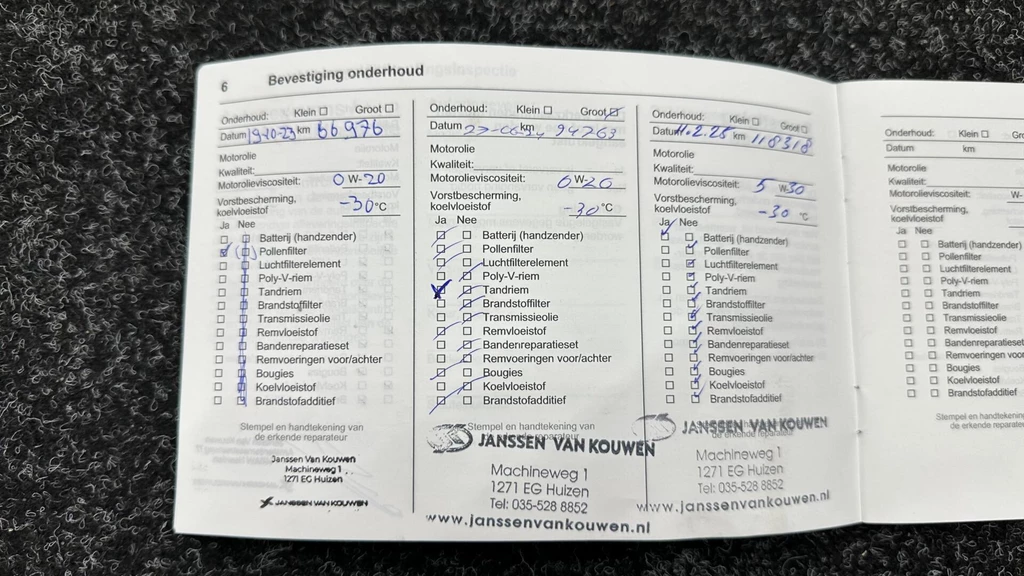 6 Bevestiging onderhoud
Onderhoud: Klein Groot
Datum 19-10-23 km 66976
Motorolie
Kwaliteit:
Motorolieviscositeit: 0 W-20
Vorstbescherming,
koelvloeistof -30 °C
Ja Nee
Batterij (handzender)
Pollenfilter
Luchtfilterelement
Poly-V-riem
Tandriem
Brandstoffilter
Transmissieolie
Remvloeistof
Bandenreparatieset
Remvoeringen voor/achter
Bougies
Koelvloeistof
Brandstofadditief
Stempel en handtekening van
de erkende reparateur
Janssen Van Kouwen
Machineweg 1
1271 EG Huizen
JANSSEN VAN KOUWEN
Onderhoud: Klein Groot
Datum km 94763
Motorolie
Kwaliteit:
Motorolieviscositeit: 0 W-20
Vorstbescherming,
koelvloeistof -30 °C
Ja Nee
Batterij (handzender)
Pollenfilter
Luchtfilterelement
Poly-V-riem
Tandriem
Brandstoffilter
Transmissieolie
Remvloeistof
Bandenreparatieset
Remvoeringen voor/achter
Bougies
Koelvloeistof
Brandstofadditief
Stempel en handtekening van
de erkende reparateur
JANSSEN VAN KOUWEN
Machineweg 1
1271 EG Huizen
Tel: 035-528 8852
www.janssenvankouwen.nl
Onderhoud: Klein Groot
Datum 11.2.25 km 118318
Motorolie
Kwaliteit:
Motorolieviscositeit: 5 W-30
Vorstbescherming,
koelvloeistof -30 °C
Ja Nee
Batterij (handzender)
Pollenfilter
Luchtfilterelement
Poly-V-riem
Tandriem
Brandstoffilter
Transmissieolie
Remvloeistof
Bandenreparatieset
Remvoeringen voor/achter
Bougies
Koelvloeistof
Brandstofadditief
Stempel en handtekening van
de erkende reparateur
JANSSEN VAN KOUWEN
Machineweg 1
1271 EG Huizen
Tel: 035-528 8852
www.janssenvankouwen.nl
Onderhoud: Klein Groot
Datum km
Motorolie
Kwaliteit:
Motorolieviscositeit: W-
Vorstbescherming,
koelvloeistof
Ja Nee
Batterij (handzender)
Pollenfilter
Luchtfilterelement
Poly-V-riem
Tandriem
Brandstoffilter
Transmissieolie
Remvloeistof
Bandenreparatieset
Remvoeringen voor
Bougies
Koelvloeistof
Brandstofadditief
Stempel en handtekening
de erkende reparateur